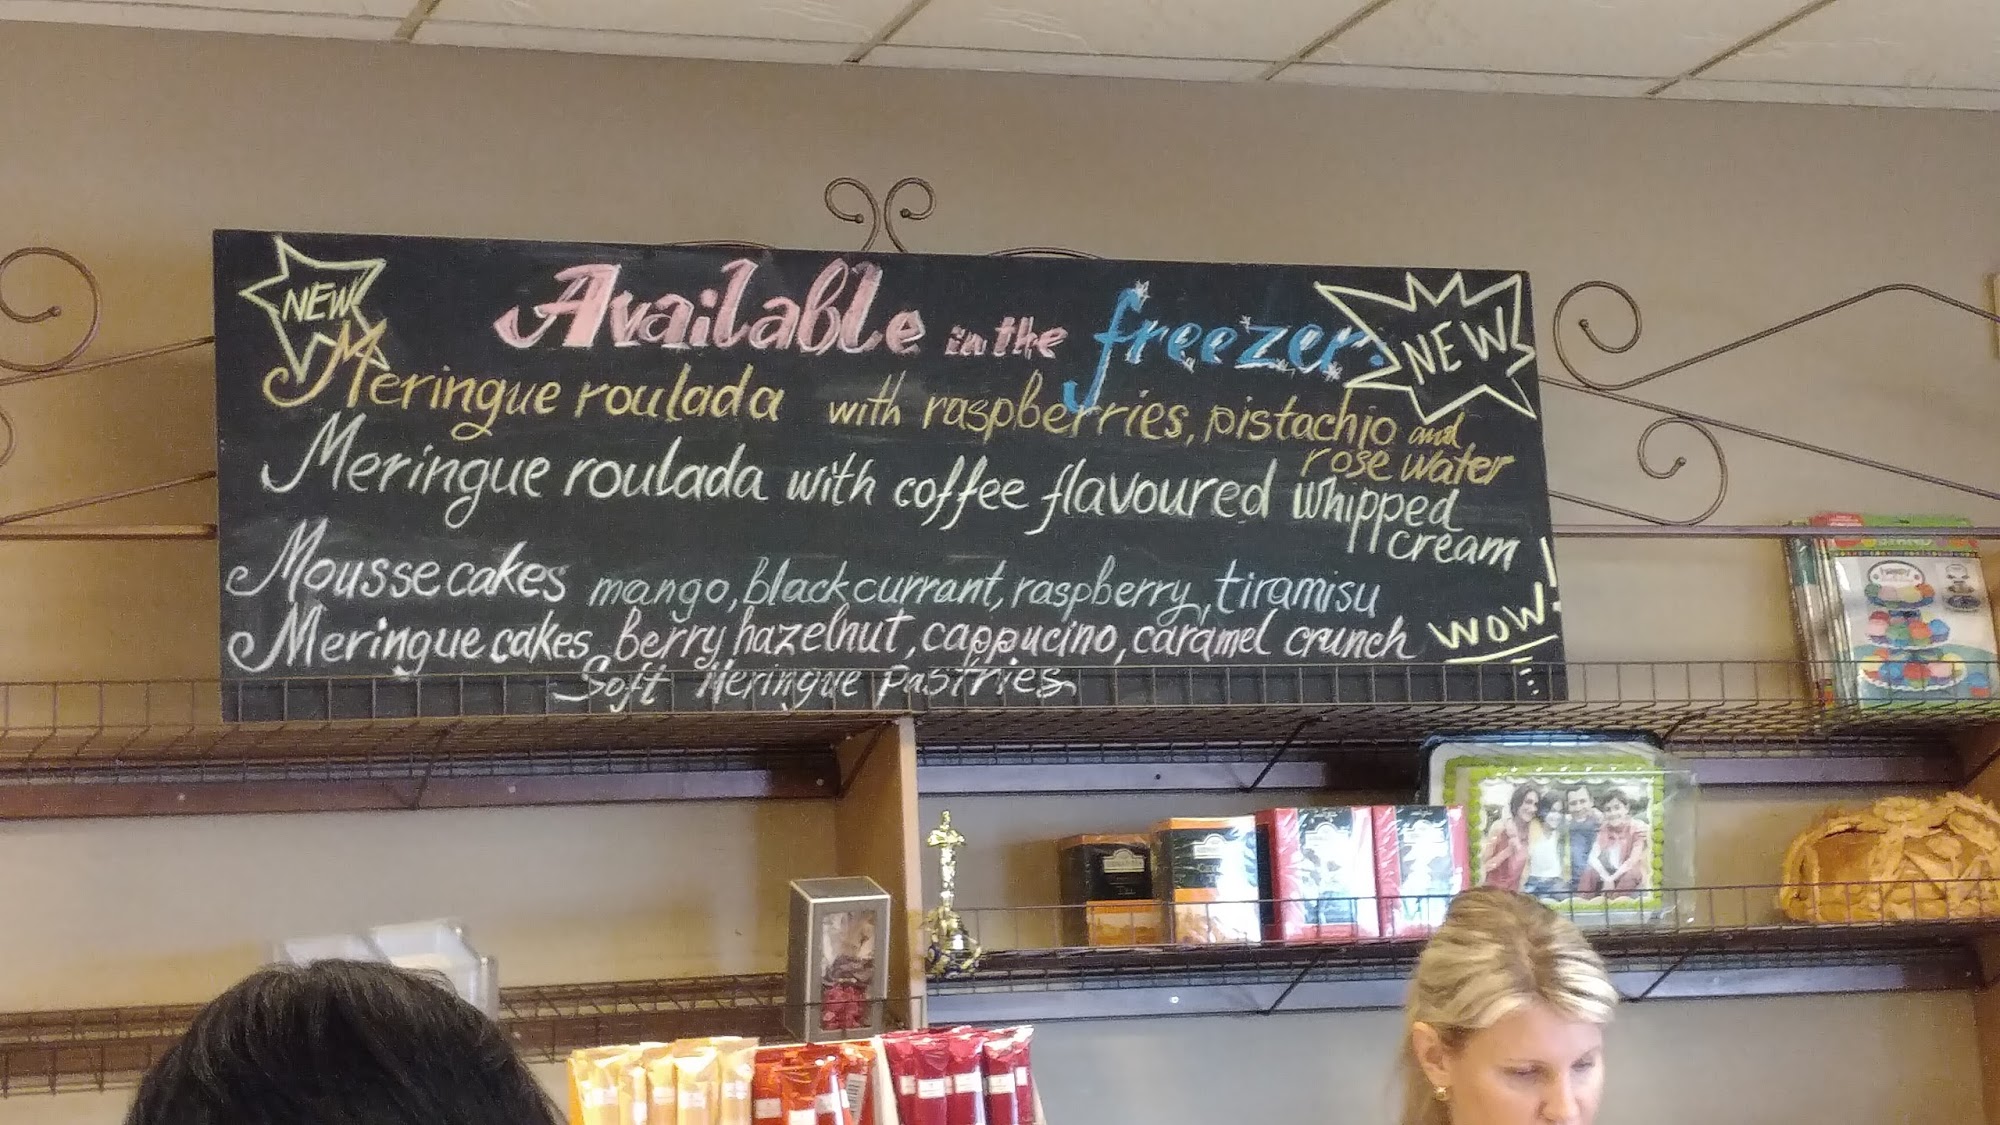 NEW
Available in the freezer:
NEW
Meringue roulada with raspberries, pistachio and
rose water
Meringue roulada with coffee flavoured whipped
cream
Mousse cakes mango, black currant, raspberry, tiramisu
Meringue cakes berry hazelnut, cappucino, caramel crunch
WOW!
Soft Meringue pastries